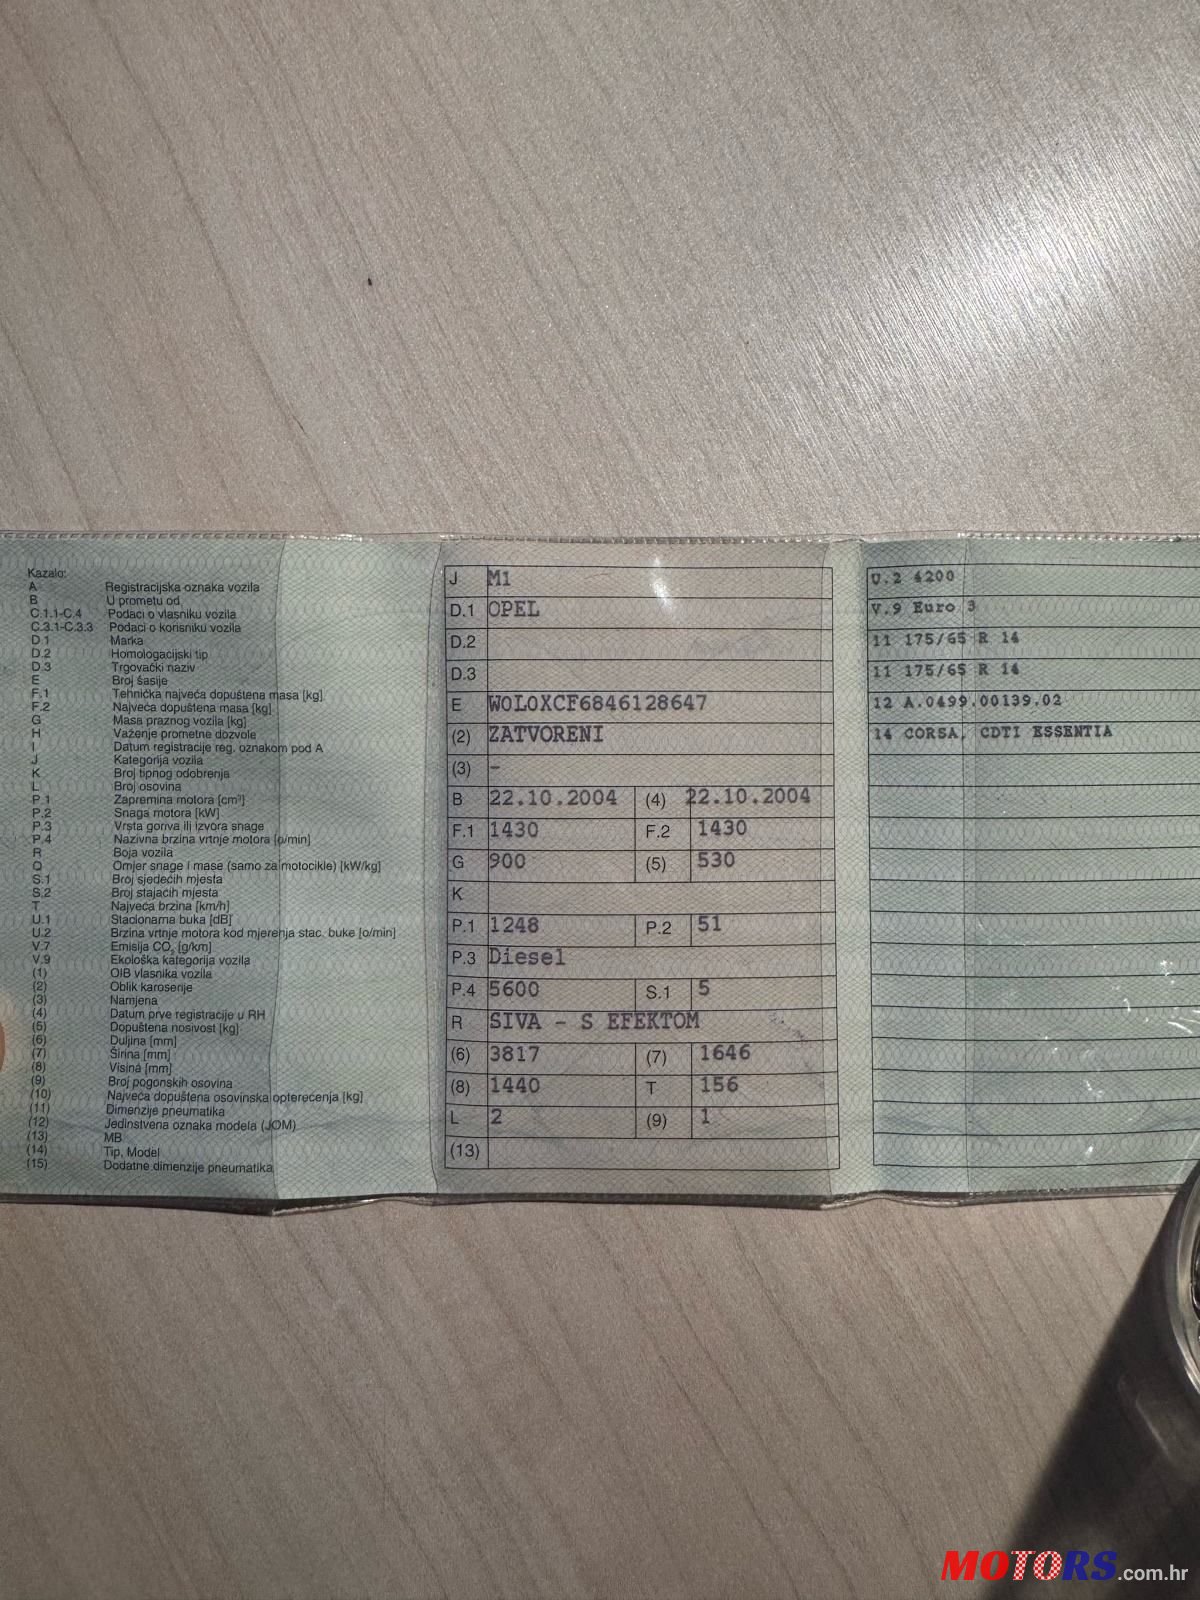 Kazalo:
A Registracijska oznaka vozila
B U prometu od
C.1.1-C.4 Podaci o vlasniku vozila
C.3.1-C.3.3 Podaci o korisniku vozila
D.1 Marka
D.2 Homologacijski tip
D.3 Trgovački naziv
E Broj šasije
F.1 Tehnička najveća dopuštena masa [kg]
F.2 Najveća dopuštena masa [kg]
G Masa praznog vozila [kg]
H Važenje prometne dozvole
I Datum registracije reg. oznakom pod A
J Kategorija vozila
K Broj tipnog odobrenja
L Broj osovina
P.1 Zapremina motora [cm³]
P.2 Snaga motora [kW]
P.3 Vrsta goriva ili izvora snage
P.4 Nazivna brzina vrtnje motora [o/min]
R Boja vozila
Q Omjer snage i mase (samo za motocikle) [kW/kg]
S.1 Broj sjedećih mjesta
S.2 Broj stajaćih mjesta
T Najveća brzina [km/h]
U.1 Stacionarna buka [dB]
U.2 Brzina vrtnje motora kod mjerenja stac. buke [o/min]
V.7 Emisija CO₂ [g/km]
V.9 Ekološka kategorija vozila
(1) OIB vlasnika vozila
(2) Oblik karoserije
(3) Namjena
(4) Datum prve registracije u RH
(5) Dopuštena nosivost [kg]
(6) Duljina [mm]
(7) Širina [mm]
(8) Visina [mm]
(9) Broj pogonskih osovina
(10) Najveća dopuštena osovinska opterećenja [kg]
(11) Dimenzije pneumatika
(12) Jedinstvena oznaka modela (JOM)
(13) MB
(14) Tip, Model
(15) Dodatne dimenzije pneumatika
J M1
D.1 OPEL
D.2
D.3
E W0L0XCF6846128647
(2) ZATVORENI
(3) -
B 22.10.2004 (4) 22.10.2004
F.1 1430 F.2 1430
G 900 (5) 530
K
P.1 1248 P.2 51
P.3 Diesel
P.4 5600 S.1 5
R SIVA - S EFEKTOM
(6) 3817 (7) 1646
(8) 1440 T 156
L 2 (9) 1
(13)
U.2 4200
V.9 Euro 3
11 175/65 R 14
11 175/65 R 14
12 A.0499.00139.02
14 CORSA, CDTI ESSENTIA
MOTORS.com.hr